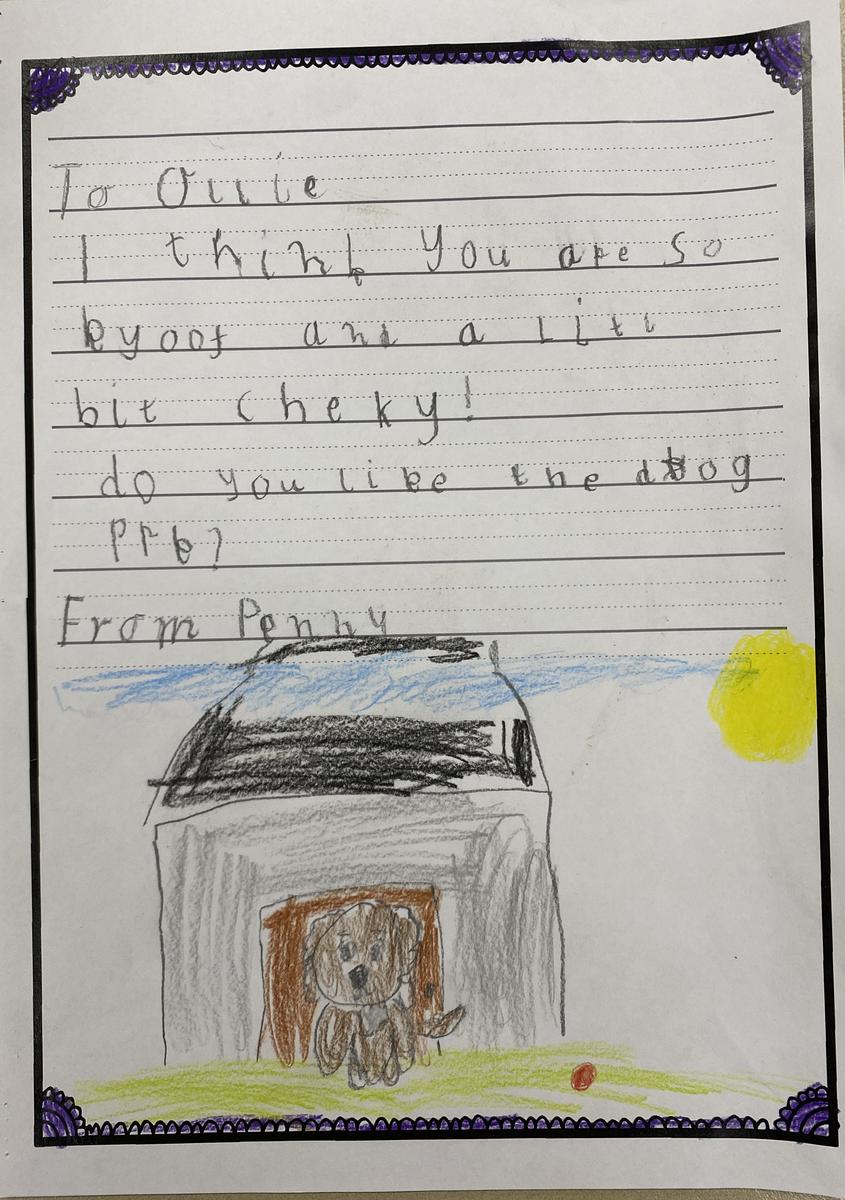 To Ollie
I think you are so
kyoot and a liti
bit cheky!
do you like the dog
prk?
From Penny